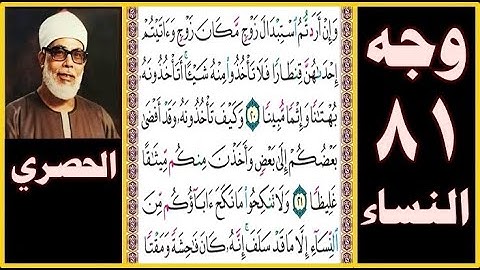 وجه
٨١
النساء
وَإِنْ أَرَدتُّمُ ٱسْتِبْدَالَ زَوْجٍ مَّكَانَ زَوْجٍ وَءَاتَيْتُمْ
إِحْدَىٰهُنَّ قِنطَارًا فَلَا تَأْخُذُوا۟ مِنْهُ شَيْـًٔا أَتَأْخُذُونَهُۥ
بُهْتَـٰنًا وَإِثْمًا مُّبِينًا ٢٠ وَكَيْفَ تَأْخُذُونَهُۥ وَقَدْ أَفْضَىٰ
بَعْضُكُمْ إِلَىٰ بَعْضٍ وَأَخَذْنَ مِنكُم مِّيثَـٰقًا
غَلِيظًا ٢١ وَلَا تَنكِحُوا۟ مَا نَكَحَ ءَابَآؤُكُم مِّنَ
ٱلنِّسَآءِ إِلَّا مَا قَدْ سَلَفَ إِنَّهُۥ كَانَ فَـٰحِشَةً وَمَقْتًا
الحصري